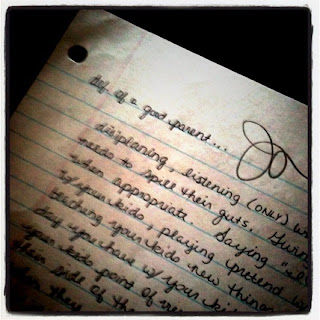 def. of a good parent...
disiplaning, listening (ONLY) w
needs to spill their guts. Givin
when appropriate. Saying "
w/ your kids, playing pretend w
teaching your kid new things
day you have w/ your kid
your kids point of
their side of the